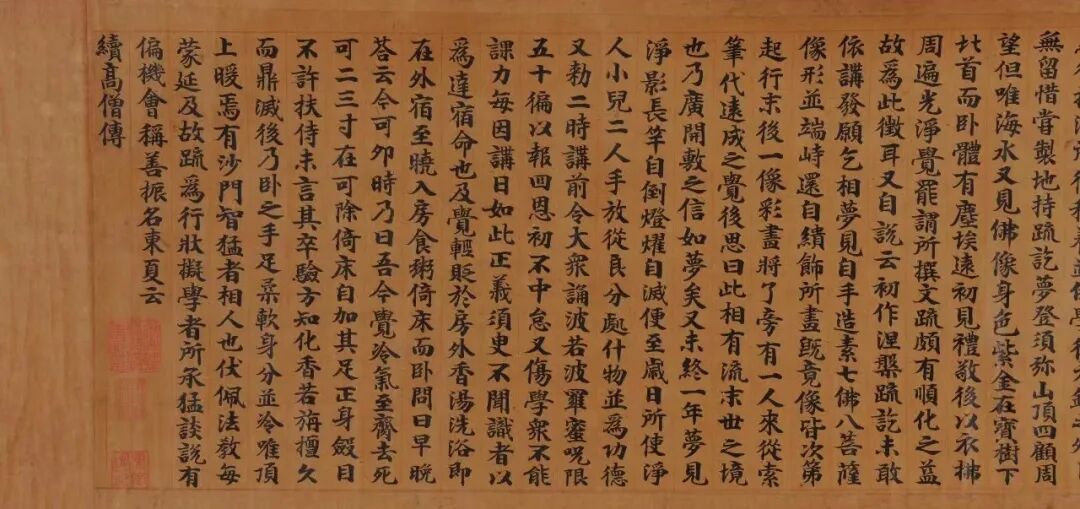 無留惜嘗製地持疏訖夢登須弥山頂四顧周
望但唯海水又見佛像身色紫金在寶樹下
北首而卧體有塵埃遠初見禮敬後以衣拂
周遍光淨覺罷謂所撰文疏頗有順化之益
故爲此徵耳又自說云初作涅盤疏訖未敢
依講發願乞相夢見自手造素七佛八菩薩
像形並端峙還自繢飾所畫旣竟像皆次第
起行末後一像彩畫將了旁有一人來從索
筆代遠成之覺後思曰此相有流末世之境
也乃廣開敷之信如夢矣又未終一年夢見
淨影長竿自倒燈燿自滅便至歲日所使淨
人小兒二人手放從良分處什物並爲功德
又勑二時講前令大衆誦波若波羅蜜呪限
五十徧以報四恩初不中怠又傷學衆不能
課力每因講日如此正義須臾不聞識者以
爲達宿命也及覺輕貶於房外香湯洗浴即
在外宿至曉入房食粥倚床而卧問曰早晚
荅云今可卯時乃曰吾今覺冷氣至齊去死
可二三寸在可除倚床自加其足正身斂目
不許扶侍未言其卒驗方知化香若旃檀久
而鼎滅後乃卧之手足柔軟身分並冷唯頂
上暖焉有沙門智猛者相人也伏佩法教每
蒙延及故疏爲行狀擬學者所承猛談說有
偏機會稱善振名東夏云
續高僧傳